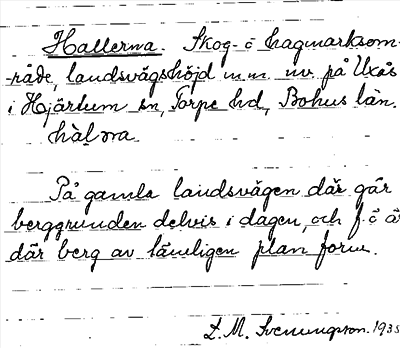 Hallerna. Skog- o hagmarksom-
-råde, landsvägshöjd m.m. nv. på Uxås
i Hjärtum sn, Torpe hd, Bohus län.
hàl ɔra.
På gamla landsvägen där går
berggrunden delvis i dagen, och f. ö är
där berg av tämligen plan form.
L. M. Svenungsson. 1935